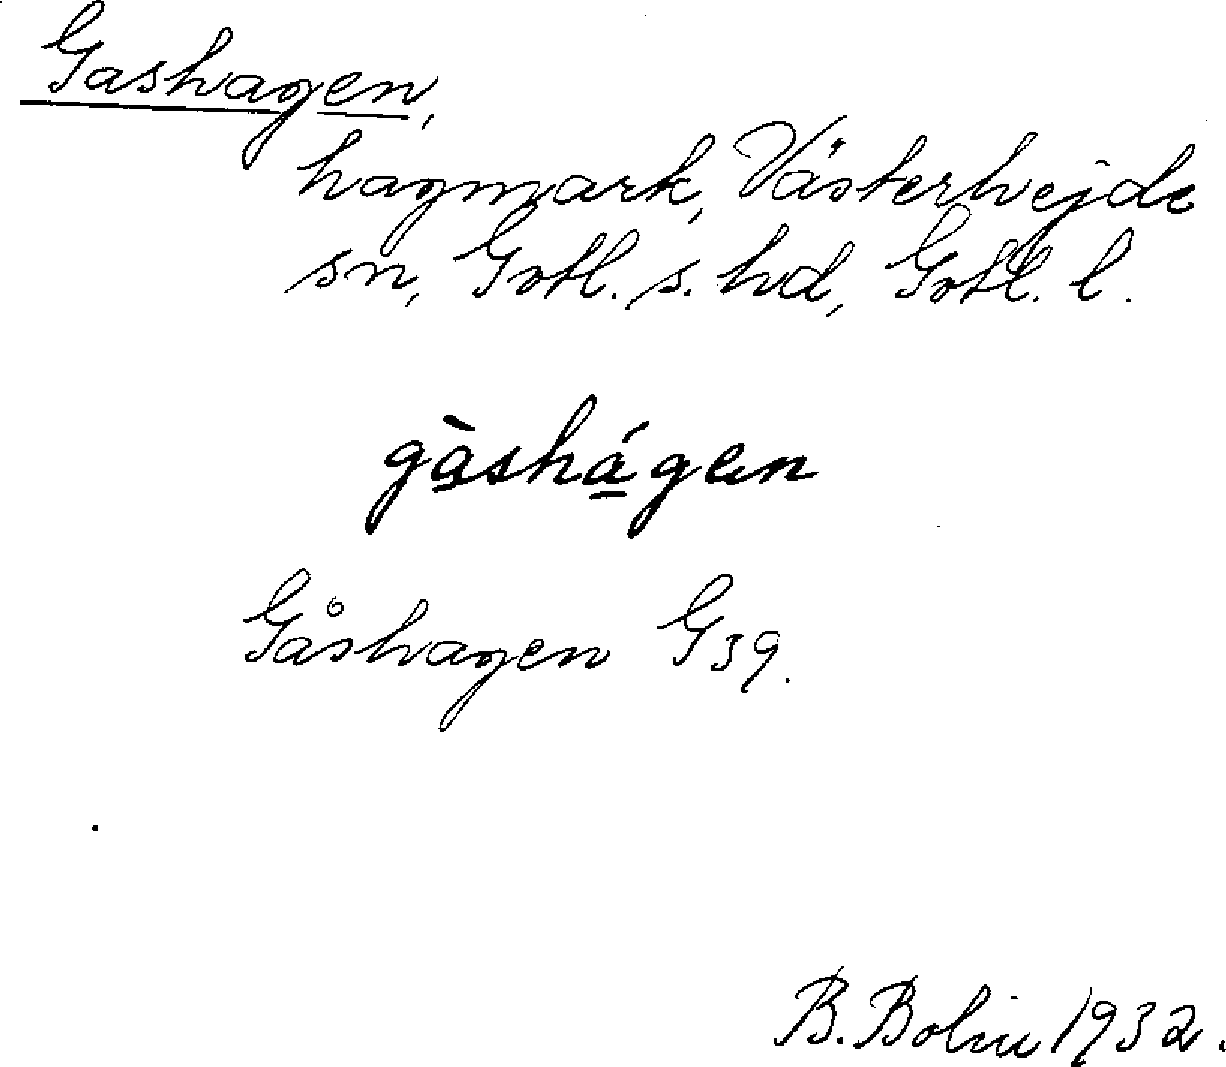 Gashagen,
hagmark, Västerhejde
sn, Gotl. s. hd, Gotl. l.
gàshágen
Gåshagen G 39.
B. Bolin 1932.